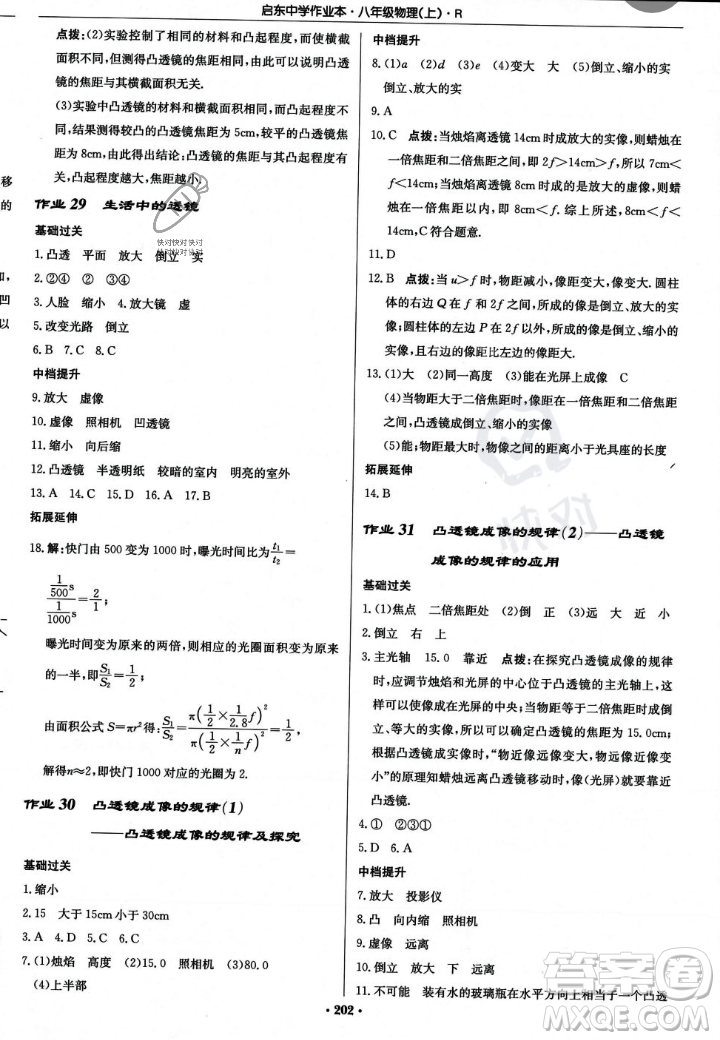 启东中学作业本·八年级物理(上)·R
点拨:(2)实验控制了相同的材料和凸起程度,
而横截面积不同,由此可以看出,可以说明凸透
镜的焦距与其横截面积无关.
(3)实验中凸透镜的材料和横截面积相同,凸起程度不
同,结果测得较凸的凸透镜焦距为5cm,较平的凸透镜焦
距为8cm,由此得出结论:凸透镜的材料和横截面积相
同,凸起程度越大,焦距越小.
作业29 生活中的透镜
基础过关
1.凸透 平面 放大 倒立 实
2.②④ ②④
3.人脸 缩小 4.放大镜 虚
5.改变光路 倒立
6.B 7.C 8.C
中档提升
9.放大 虚像
10.虚像 照相机 凹透镜
11.缩小 向后缩
12.凸透镜 半透明纸 较暗的室内 明亮的室外
13.A 14.A 15.C 16.A 17.B
拓展延伸
18.解:快门由500变为1000时,曝光时间比为t₁/t₂=
(1/500 s)/(1/1000 s)=2/1;
曝光时间变为原来的两倍,则对应的光圈面积变为原来
的一半,即S₁/S₂=1/2;
由面积公式S=πr²得:S₁/S₂=π(1/2×1/2.8 f)²/π(1/2×1/n f)²=1/2,
解得n≈2,即快门1000对应的光圈为2.
作业30 凸透镜成像的规律(1)
——凸透镜成像的规律及探究
基础过关
1.缩小
2.15 大于15cm小于30cm
3.A 4.D 5.C 6.B
7.(1)烛焰 高度 (2)15.0 照相机 (3)80.0
(4)上半部
中档提升
8.(1)a (2)d (3)e (4)变大 大 (5)倒立、缩小的实
倒立、放大的实
9.A
10.C 点拨:当烛焰离透镜14cm时成放大的实像,则蜡烛在
一倍焦距和二倍焦距之间,即2f>14cm>f,所以7cm<
f<14cm;当烛焰离透镜8cm时成放大的虚像,则蜡
烛在一倍焦距以内,即8cm<f.综上所述,8cm<f<
14cm,C符合题意.
11.D
12.B 点拨:当u>f时,物距减小,像距变大,像变大.圆柱
体的右边Q在f和2f之间,成倒立、放大的实像,像距变
大;圆柱体的左边P在2f以外,成倒立、缩小的
实像,右边的像距比左边的像距大.
13.(1)大 (2)同一高度 (3)能在光屏上成像 C
(4)当物距大于二倍焦距时,像距大于一倍焦距小于二倍
焦距之间,凸透镜成倒立、缩小的实像
(5)能;物距最大时,物像之间的距离小于光具座的长度
拓展延伸
14.B
作业31 凸透镜成像的规律(2)——凸透镜
成像的规律的应用
基础过关
1.(1)焦点 二倍焦距处 (2)倒 正 (3)远 大 近 小
2.倒立 右 上
3.主光轴 15.0 靠近 点拨:在探究凸透镜成像的规律
时,应调节烛焰和光屏的中心位于凸透镜的主光轴上,
这样像才能呈现在光屏的中央;当物距等于二倍焦距时成倒
立、等大的实像,所以可以确定凸透镜的焦距为15.0cm;
根据凸透镜成实像时,“物近像远像变大,物远像近像变
小”的原理知蜡烛远离凸透镜移动时,像(光屏)就要靠近
凸透镜.
4.① ②③①
5.D 6.A
中档提升
7.放大 投影仪
8.凸 向内缩 照相机
9.虚像 远离
10.倒立 放大 下 远离
11.不可能 装有水的玻璃瓶在水平方向上相当于一个凸透
·202·
快对快对快对
快对快对快对
快对
答案圈
MXQE.COM